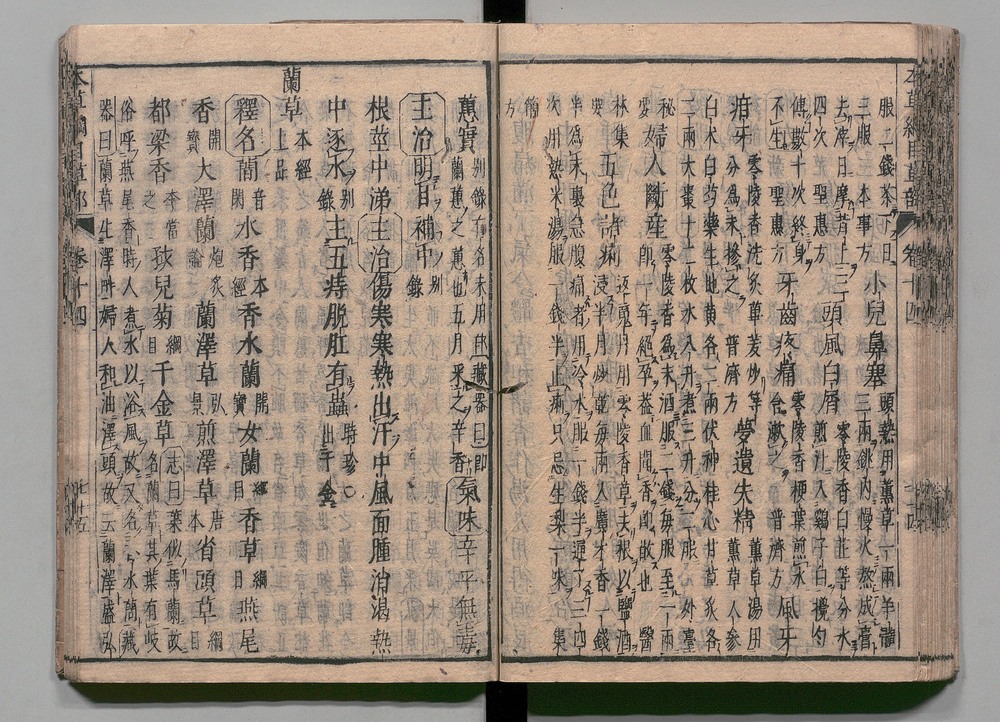 服二錢茶下日三服三本事方小兒鼻塞頭熱用薰草一兩羊髓
三兩銚內慢火熬成膏去滓日摩背上三四次聖惠方頭風白屑零陵香白芷等分水
煎汁入鷄子白攪勻傅數十次終身不生聖惠方牙齒疼痛零陵香梗葉煎水含漱之普濟方風牙
疳牙零陵香洗炙蓽茇炒等分為末摻之普濟方夢遺失精薰草湯用薰草人參
白朮白芍藥生地黃各二兩伏神桂心甘草炙各二兩大棗十二枚水八升煮三升分二服外臺
秘要婦人斷産零陵香為末酒服二錢每服至一兩即一年絕孕蓋血聞香即散也醫
林集要五色諸痢返魂丹用零陵香草去根以鹽酒浸半月炒乾每兩入廣木香一錢
半為末裏急腹痛者用冷水服一錢半通了三四次用熱米湯服一錢半止痢只忌生梨一味集
簡方
蕙實別錄有名未用藏器曰即蘭蕙之蕙也五月采之辛香氣味辛平無毒
主治明目補中別錄
根莖中涕主治傷寒寒熱出汗中風面腫消渴熱
中逐水別錄主五痔脫肛有蟲時珍○出千金
蘭草本經上品
釋名蕑音閑水香本經香水蘭開寶女蘭綱目香草綱目燕尾
香開寶大澤蘭炮炙論蘭澤草弘景煎澤草唐本省頭草綱目
都梁香李當之孩兒菊綱目千金草志曰葉似馬蘭故名蘭草其葉有岐
俗呼燕尾香時人煮水以浴風故又名香水蘭藏
器曰蘭草生澤畔婦人和油澤頭故云蘭澤盛弘
本草綱目草部
卷十四